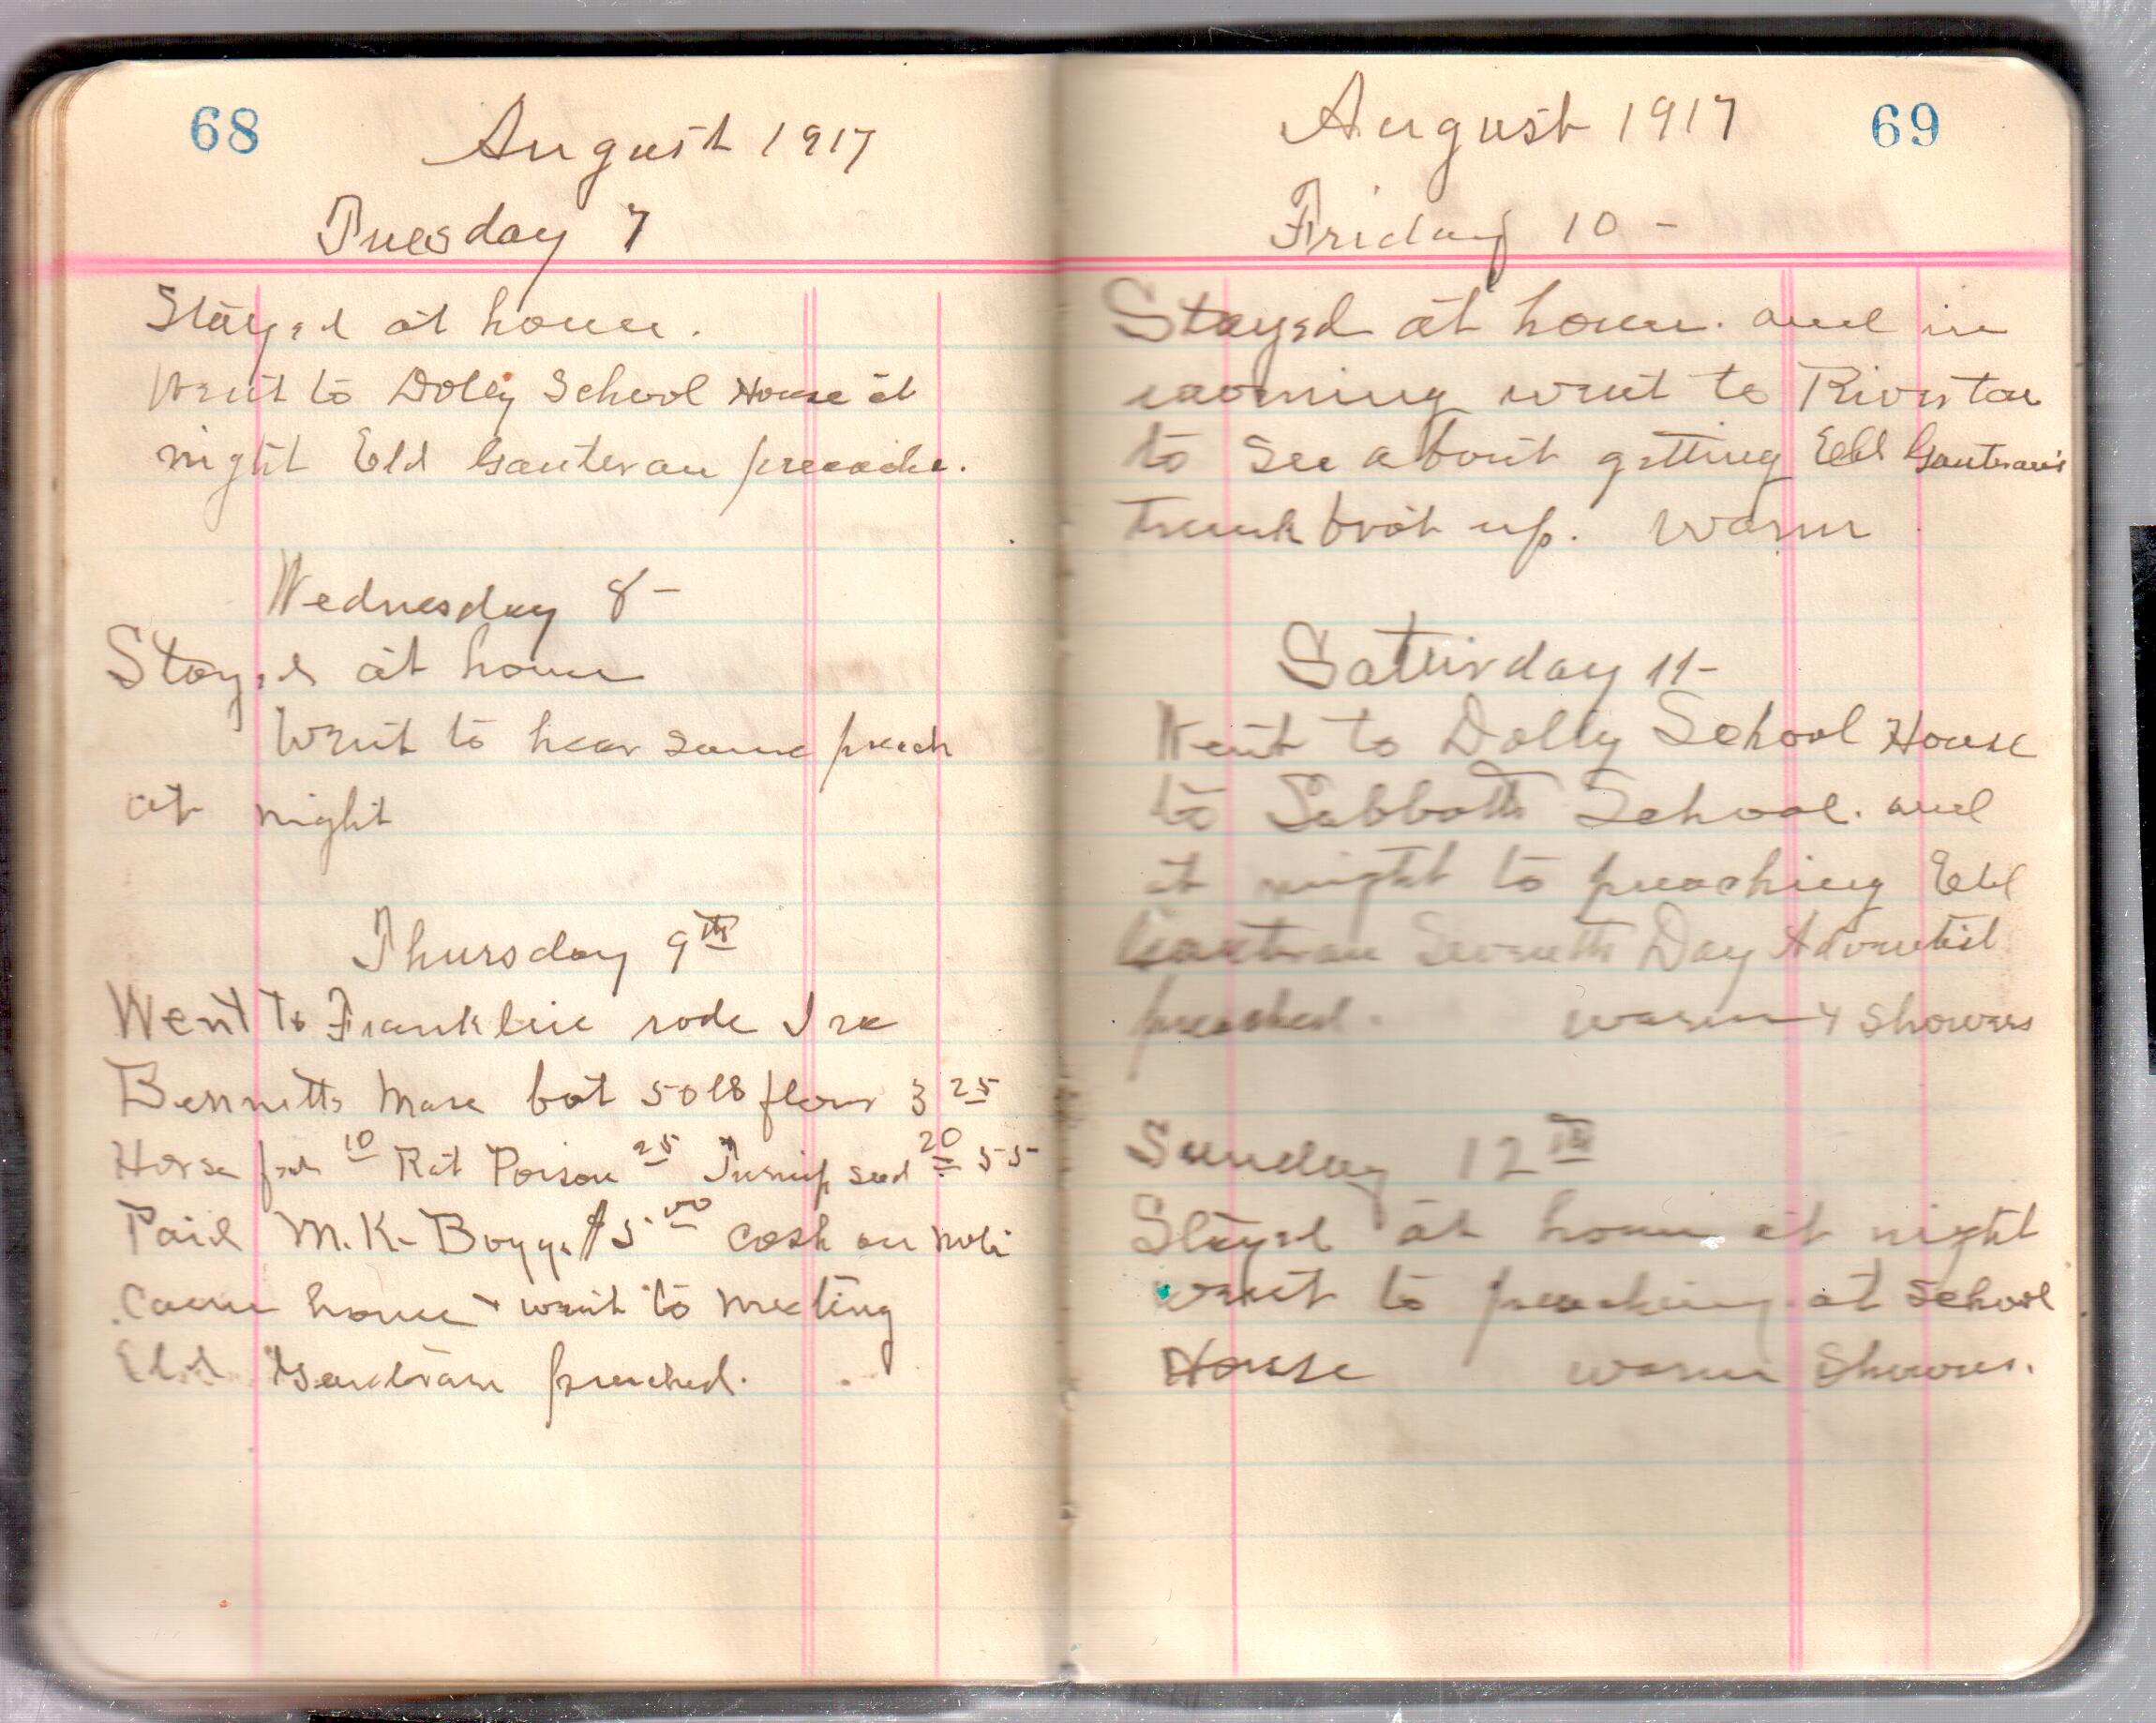 68
August 1917
Tuesday 7
Stayed at home.
Went to Dolly School House at
night Eld Gauteraux preache.
Wednesday 8-
Stayed at home
Went to hear same preach
at night
Thursday 9th
Went to Franklin rode Ira
Bennetts Mare bot 50 lb flour 3 25
Horse feed 10 Rat Poison 25 Turnip seed 20 = 55
Paid M.K. Boggs $5 00 cash on note
Came home & went to meeting
Eld preached.
August 1917
69
Friday 10 -
Stayed at home. and in
went to Riverton
to see about getting Eld
Trunk brot up. Warm
Satturday 11-
Went to Dolly School House
to Sabboth School. and
at night to preaching Eld
Seventh Day Adventist
preached. warm & Showers
Sunday 12th
Stayed at home at night
went to preaching at School
House warm Showers.